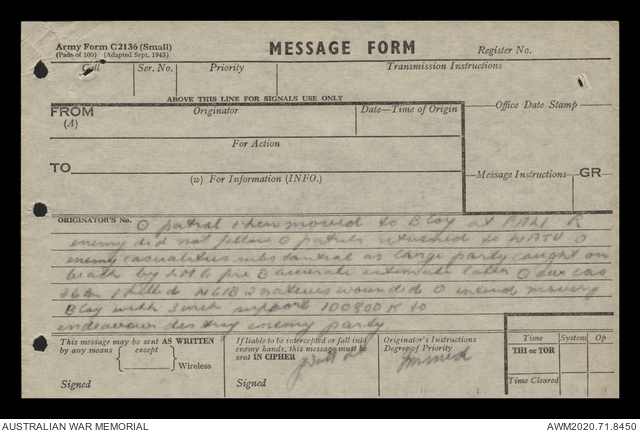 Army Form C2136 (Small)
(Pads of 100) (Adapted Sept. 1943)
MESSAGE FORM
Register No.
Call
Ser. No.
Priority
Transmission Instructions
ABOVE THIS LINE FOR SIGNALS USE ONLY
FROM
(A)
Originator
Date—Time of Origin
Office Date Stamp
For Action
TO
(w) For Information (INFO.)
Message Instructions
GR
ORIGINATOR'S No.
O patrol then moved to B Coy at R
enemy did not follow O patrols returned to O
enemy casualties substantial as large party caught on
by LMG fire B accurate O our cas
1 killed NGIB 2 natives wounded O intend moving
B Coy with 3 inch support 100800 K to
endeavour destroy enemy party
This message may be sent AS WRITTEN
by any means
except
Wireless
Signed
If liable to be intercepted or fall into
enemy hands, this message must be
sent IN CIPHER
Signed
Originator's Instructions
Degree of Priority
Immed
Time
System
Op
THI or TOR
Time Cleared
AUSTRALIAN WAR MEMORIAL
AWM2020.71.8450